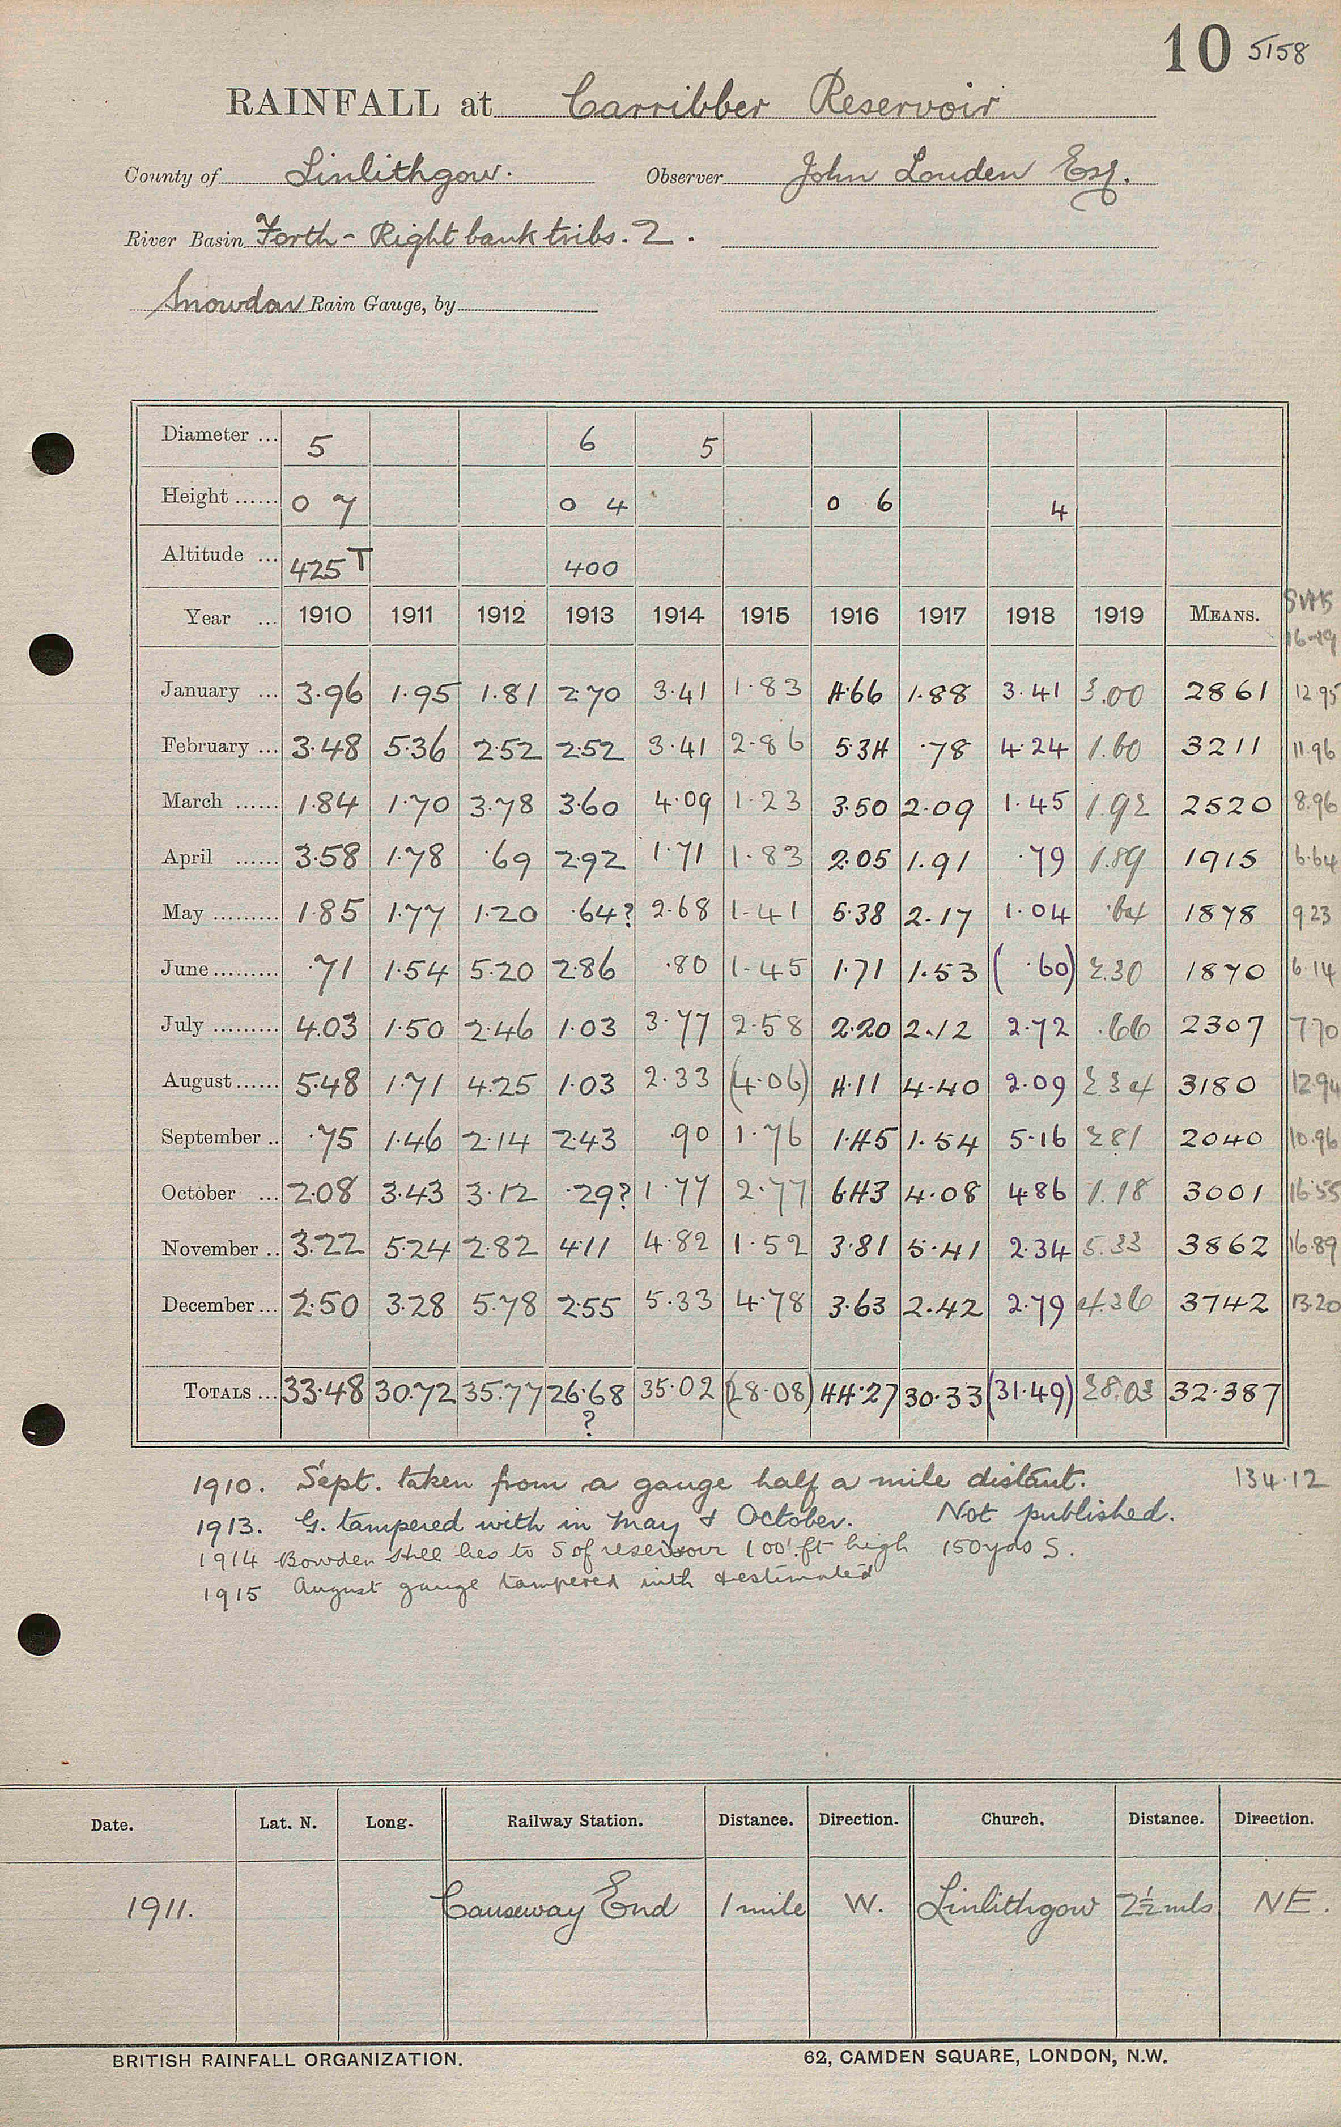 10 5158
RAINFALL at Carribber Reservoir
County of Linlithgow. Observer John Louden Esq.
River Basin Forth - Right bank tribs. 2.
Snowdon Rain Gauge, by
Diameter ... 5 6 5
Height ...... 0 7 0 4 0 6 4
Altitude ... 425 T 400
Year ... 1910 1911 1912 1913 1914 1915 1916 1917 1918 1919 MEANS. 16-19
January ... 3.96 1.95 1.81 2.70 3.41 1.83 4.66 1.88 3.41 3.00 2861 12.95
February ... 3.48 5.36 2.52 2.52 3.41 2.86 5.34 .78 4.24 1.60 3211 11.96
March ...... 1.84 1.70 3.78 3.60 4.09 1.23 3.50 2.09 1.45 1.92 2520 8.96
April ...... 3.58 1.78 .69 2.92 1.71 1.83 2.05 1.91 .79 1.89 1915 6.64
May ......... 1.85 1.77 1.20 .64? 2.68 1.41 5.38 2.17 1.04 .64 1878 9.23
June ......... .71 1.54 5.20 2.86 .80 1.45 1.71 1.53 (.60) 2.30 1870 6.14
July ......... 4.03 1.50 2.46 1.03 3.77 2.58 2.20 2.12 2.72 .66 2307 7.70
August ...... 5.48 1.71 4.25 1.03 2.33 (4.06) 4.11 4.40 2.09 2.34 3180 12.94
September .. .75 1.46 2.14 2.43 .90 1.76 1.45 1.54 5.16 2.81 2040 10.96
October ... 2.08 3.43 3.12 .29? 1.77 2.77 6.43 4.08 4.86 1.18 3001 16.55
November .. 3.22 5.24 2.82 4.11 4.82 1.52 3.81 5.41 2.34 5.33 3862 16.89
December ... 2.50 3.28 5.78 2.55 5.33 4.78 3.63 2.42 2.79 4.36 3742 13.20
TOTALS ... 33.48 30.72 35.77 26.68 ? 35.02 (28.08) 44.27 30.33 (31.49) 28.03 32.387
134.12
1910. Sept. taken from a gauge half a mile distant.
1913. G. tampered with in May & October. Not published.
1914 Bowden still lies to S of reservoir 100'.ft high 150yds S.
1915 August gauge tampered with & estimated
Date. Lat. N. Long. Railway Station. Distance. Direction. Church. Distance. Direction.
1911. Causeway End 1 mile W. Linlithgow 2½ mls NE.
BRITISH RAINFALL ORGANIZATION. 62, CAMDEN SQUARE, LONDON, N.W.